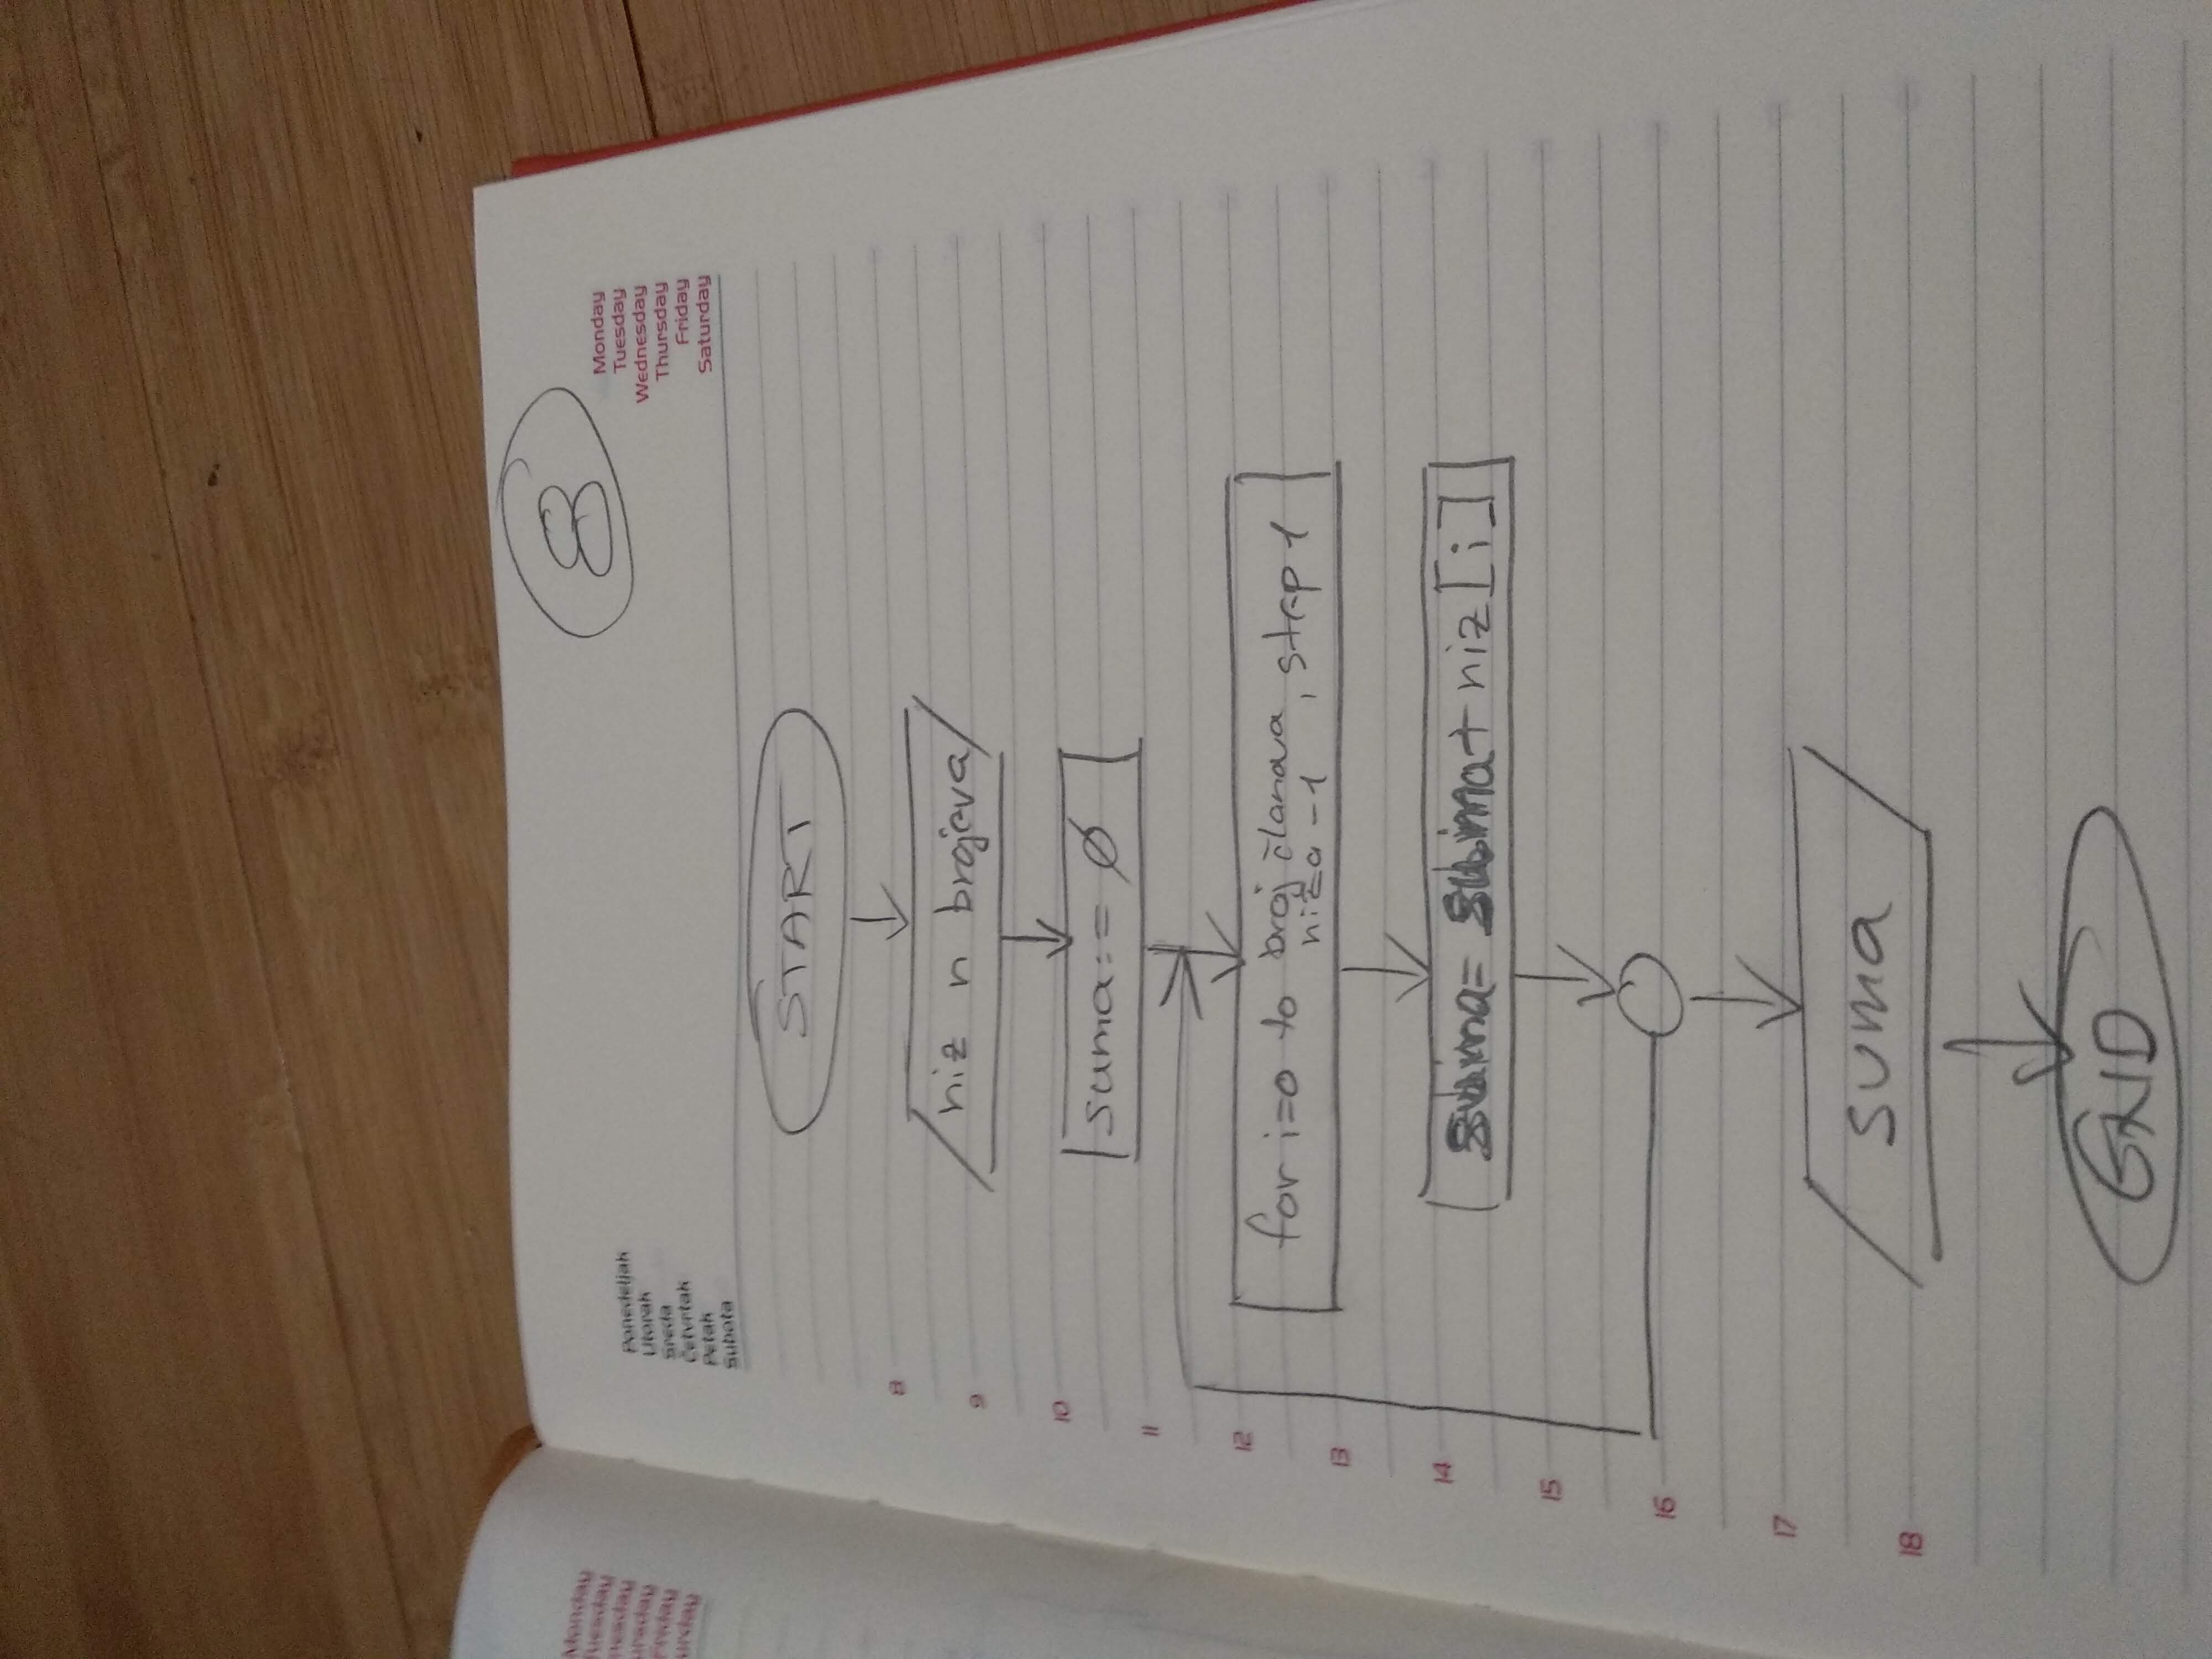 Monday
Tuesday
Wednesday
Thursday
Friday
Saturday
8
Ponedeljak
Utorak
Sreda
Četvrtak
Petak
Subota
Monday
Tuesday
Wednesday
Thursday
Friday
Saturday
START
8
niz n brojeva
9
10
suma:= Ø
11
12
for i=0 to broj članova
niza -1, step 1
13
14
suma= suma+ niz[i]
15
16
17
suma
18
END